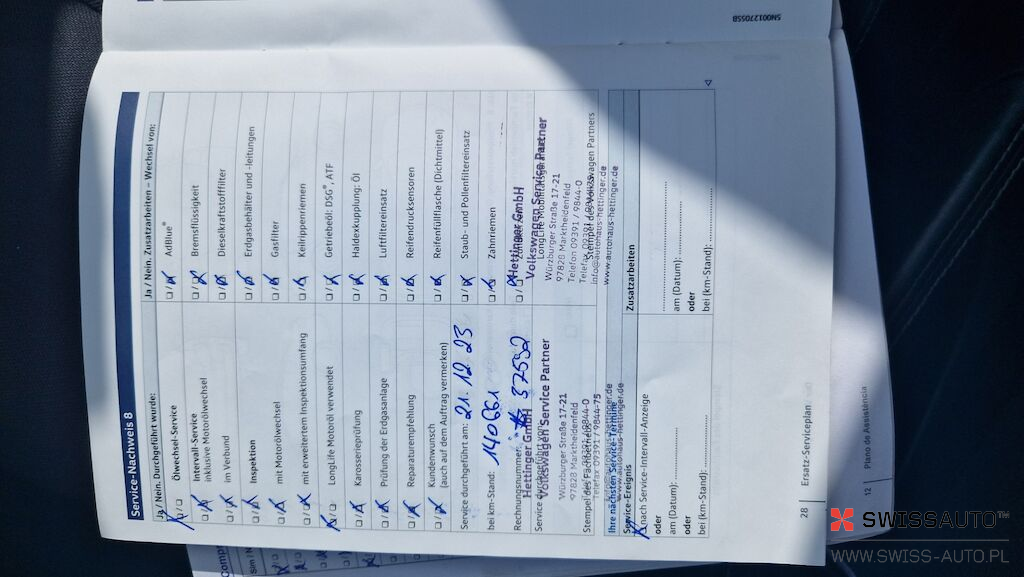 Service-Nachweis 8
Ja / Nein. Durchgeführt wurde:
Ölwechsel-Service
Intervall-Service
inklusive Motorölwechsel
im Verbund
Inspektion
mit Motorölwechsel
mit erweitertem Inspektionsumfang
LongLife Motoröl verwendet
Karosserieprüfung
Prüfung der Erdgasanlage
Reparaturempfehlung
Kundenwunsch
(auch auf dem Auftrag vermerken)
Service durchgeführt am: 21.12.23
bei km-Stand: 140661
Rechnungsnummer: 37592
Hettinger GmbH
Service durchgeführt von:
Volkswagen Service Partner
Würzburger Straße 17-21
97828 Marktheidenfeld
Stempel des Fachbetriebs
Telefax 09391 / 9844-75
Ja / Nein. Zusatzarbeiten – Wechsel von:
AdBlue®
Bremsflüssigkeit
Dieselkraftstofffilter
Erdgasbehälter und -leitungen
Gasfilter
Keilrippenriemen
Getriebeöl: DSG®, ATF
Haldexkupplung: Öl
Luftfiltereinsatz
Reifendrucksensoren
Reifenfüllflasche (Dichtmittel)
Staub- und Pollenfiltereinsatz
Zahnriemen
Hettinger GmbH
Volkswagen Service Partner
LongLife Mobilitätsgarantie
Würzburger Straße 17-21
97828 Marktheidenfeld
Telefon 09391 / 9844-0
Stempel des Volkswagen Partners
info@autohaus-hettinger.de
www.autohaus-hettinger.de
Ihre nächsten Service-Termine
www.autohaus-hettinger.de
Service-Ereignis
nach Service-Intervall-Anzeige
oder
am (Datum):
oder
bei (km-Stand):
Zusatzarbeiten
am (Datum):
oder
bei (km-Stand):
28 Ersatz-Serviceplan
5N0012705SB
12 Plano de Assistência
SWISSAUTO™
WWW.SWISS-AUTO.PL